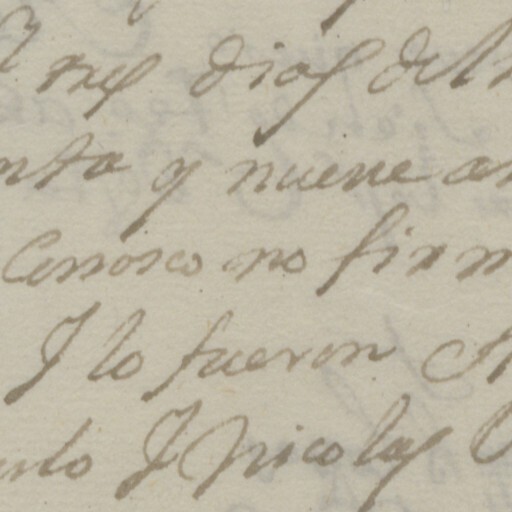 tres dias del
nta y nueve a
Conosco no firm
Y lo fueron
Y Nicolas